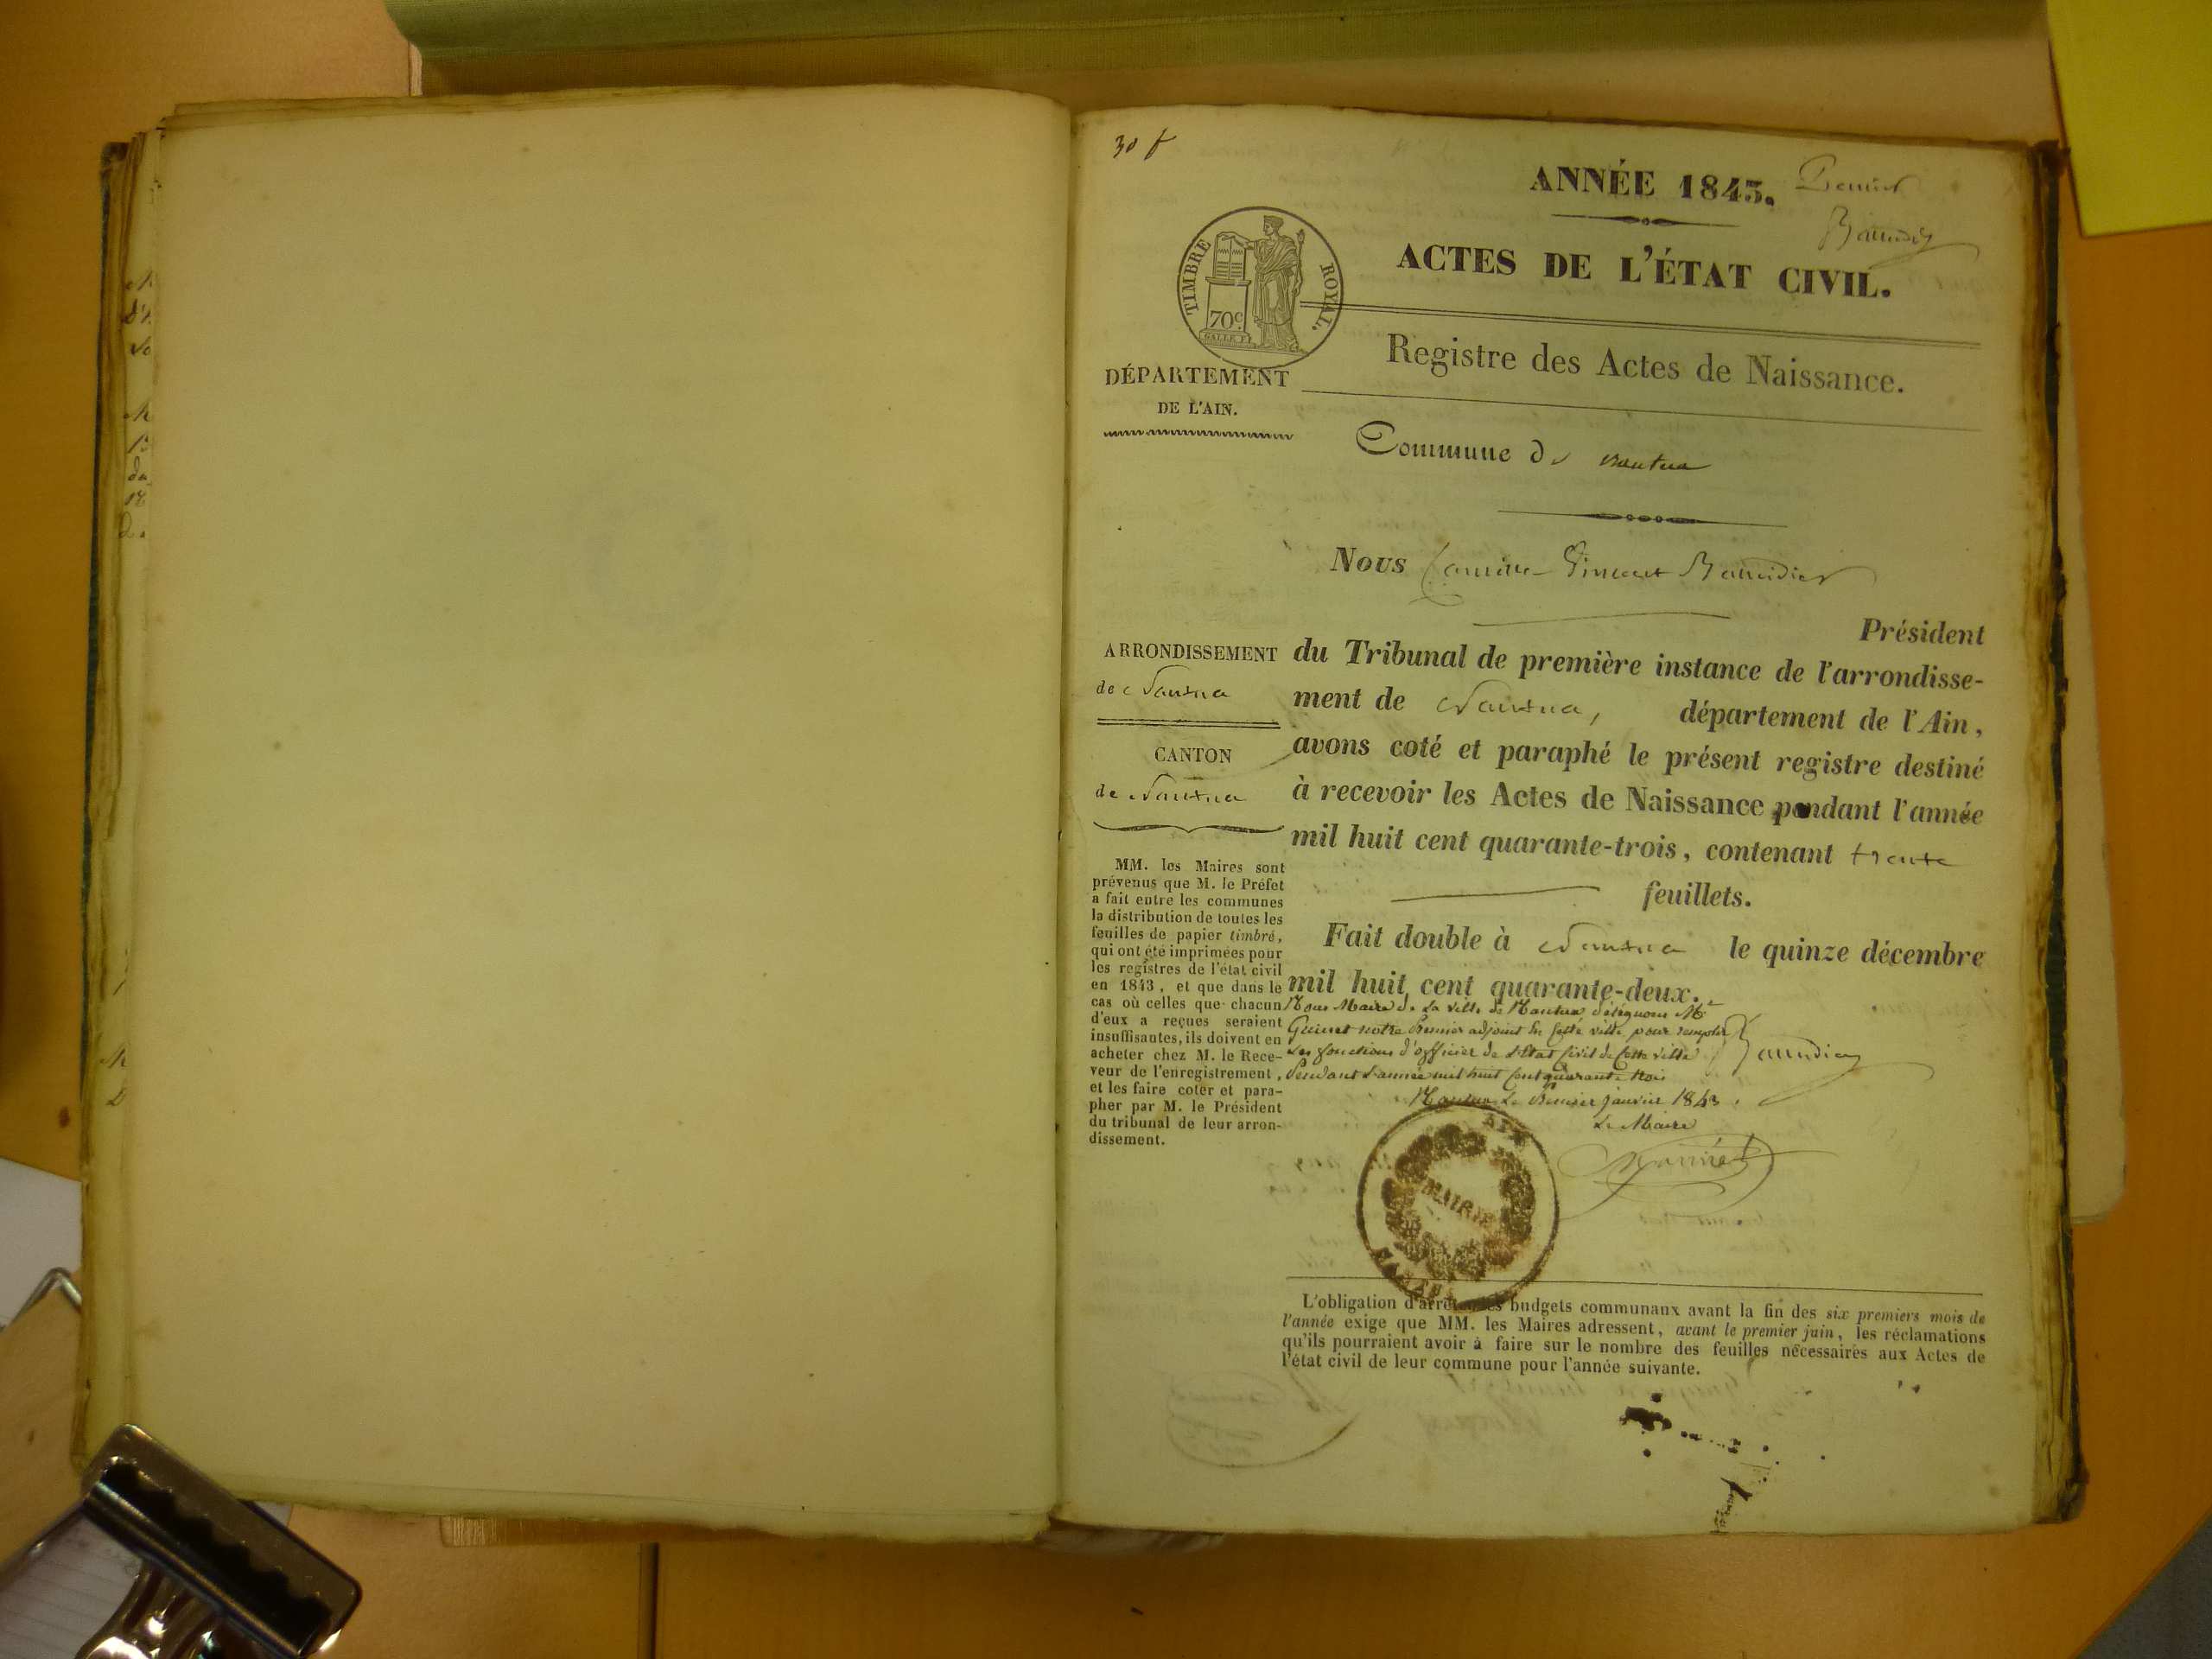 30 f
ANNÉE 1843. Premier
Baudier
TIMBRE ROYAL.
70c
ACTES DE L'ÉTAT CIVIL.
Registre des Actes de Naissance.
DÉPARTEMENT
DE L'AIN.
Commune de Nantua
Nous Camille Vincent
Président
ARRONDISSEMENT
de Nantua
CANTON
de Nantua
du Tribunal de première instance de l'arrondisse-
ment de Nantua, département de l'Ain,
avons coté et paraphé le présent registre destiné
à recevoir les Actes de Naissance pendant l'année
mil huit cent quarante-trois, contenant trente
feuillets.
Fait double à Nantua le quinze décembre
mil huit cent quarante-deux.
MM. les Maires sont
prévenus que M. le Préfet
a fait entre les communes
la distribution de toutes les
feuilles de papier timbré,
qui ont été imprimées pour
les registres de l'état civil
en 1843, et que dans le
cas où celles que chacun
d'eux a reçues seraient
insuffisantes, ils doivent en
acheter chez M. le Rece-
veur de l'enregistrement,
et les faire coter et para-
pher par M. le Président
du tribunal de leur arron-
dissement.
Nous Maire de la ville de Nantua déléguons Mr
Guinet notre Premier adjoint en cette ville pour remplir
les fonctions d'officier de l'Etat Civil de cette ville
Pendant l'année mil huit cent quarante trois
Nantua le Premier janvier 1843.
Le Maire
AIN
MAIRIE
NANTUA
L'obligation d'arrêter les budgets communaux avant la fin des six premiers mois de
l'année exige que MM. les Maires adressent, avant le premier juin, les réclamations
qu'ils pourraient avoir à faire sur le nombre des feuilles nécessaires aux Actes de
l'état civil de leur commune pour l'année suivante.